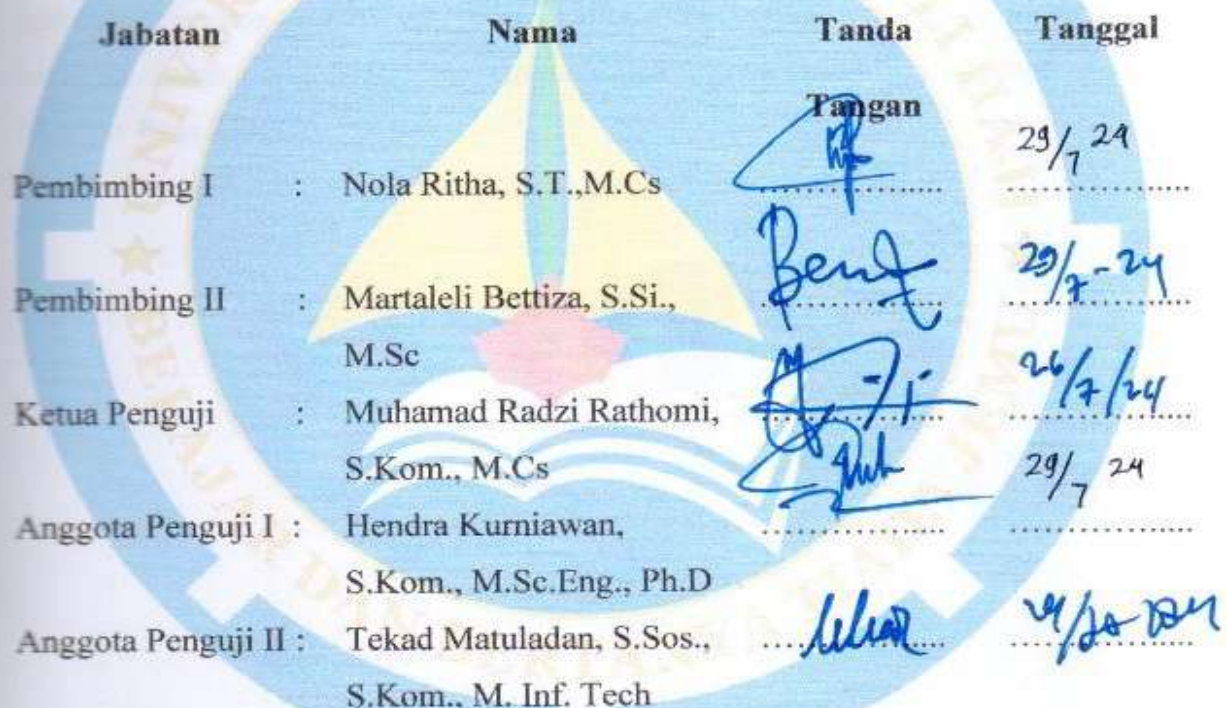 Jabatan Nama Tanda Tanggal
Tangan
29/7 24
Pembimbing I : Nola Ritha, S.T.,M.Cs ................. .................
Pembimbing II : Martaleli Bettiza, S.Si., ................. 29/7-24
M.Sc
Ketua Penguji : Muhamad Radzi Rathomi, ................. 26/7/24
S.Kom., M.Cs 29/7 24
Anggota Penguji I : Hendra Kurniawan, ................. .................
S.Kom., M.Sc.Eng., Ph.D
Anggota Penguji II : Tekad Matuladan, S.Sos., .................
S.Kom., M. Inf. Tech